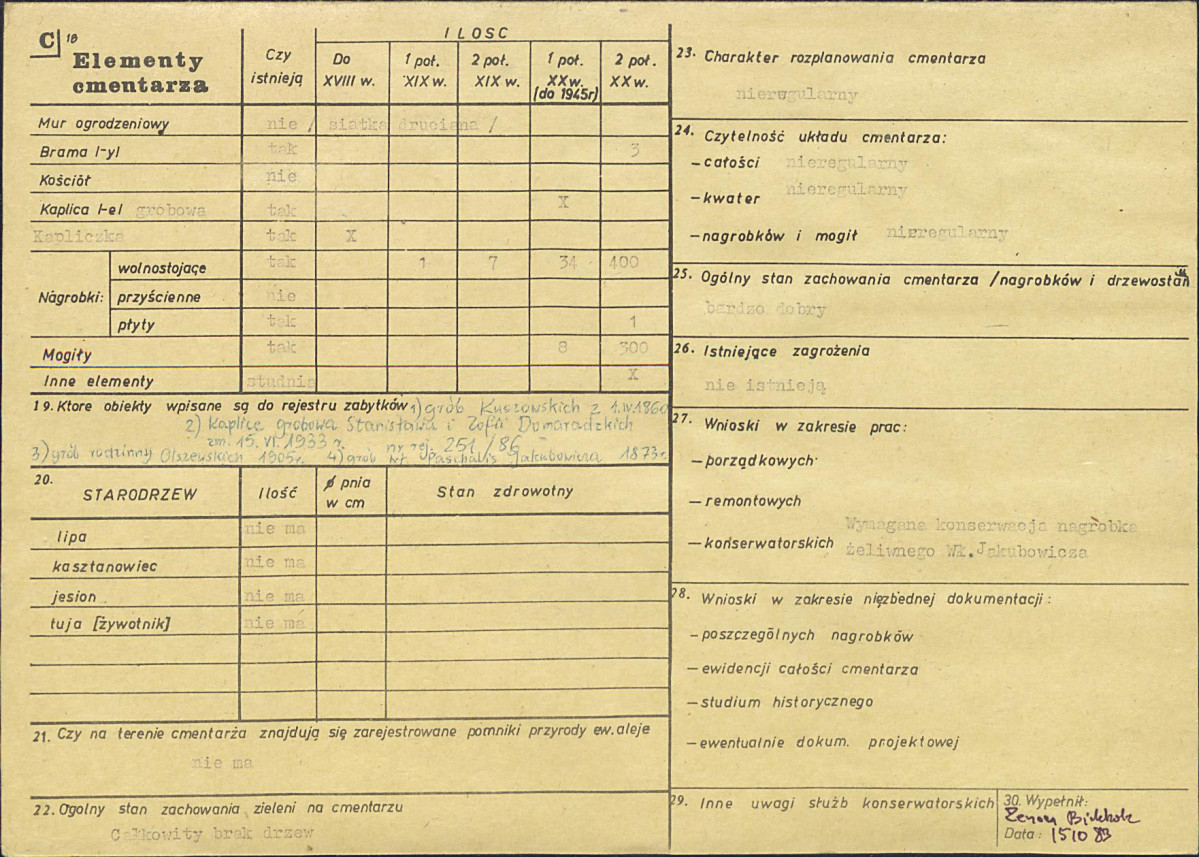 C 18
Elementy
cmentarza
Czy
istnieją
ILOSC
Do
XVIII w.
1 poł.
XIX w.
2 poł.
XIX w.
1 poł.
XX w.
(do 1945r)
2 poł.
XX w.
Mur ogrodzeniowy nie / siatka druciana /
Brama l-yl tak 3
Kościół nie
Kaplica l-el grobowa tak X
Kapliczka tak X
Nagrobki: wolnostojące tak 1 7 34 400
przyścienne nie
płyty tak 1
Mogiły tak 8 300
Inne elementy studnia X
19. Ktore obiekty wpisane są do rejestru zabytków 1) grób Kuszowskich z 1.IV.1860
2) kaplice grobowa Stanisława i Zofii Domaradzkich
zm. 15. VI. 1933 r. nr rej. 251/86
3) grób rodzinny Olszewskich 1905r. 4) grób wł. Paschalis Jakubowicza 1873r.
20. STARODRZEW
Ilość
ø pnia
w cm
Stan zdrowotny
lipa nie ma
kasztanowiec nie ma
jesion nie ma
tuja [żywotnik] nie ma
21. Czy na terenie cmentarża znajdują się zarejestrowane pomniki przyrody ew. aleje
nie ma
22. Ogolny stan zachowania zieleni na cmentarzu
Całkowity brak drzew
23. Charakter rozplanowania cmentarza
nieregularny
24. Czytelność układu cmentarza:
- całości nieregularny
- kwater nieregularny
- nagrobków i mogił nieregularny
25. Ogólny stan zachowania cmentarza /nagrobków i drzewostan
bardzo dobry
26. Istniejące zagrożenia
nie istnieją
27. Wnioski w zakresie prac:
- porządkowych
- remontowych
Wymagana konserwacja nagrobka
- konserwatorskich żeliwnego Wł. Jakubowicza
28. Wnioski w zakresie niezbędnej dokumentacji:
- poszczególnych nagrobków
- ewidencji całości cmentarza
- studium historycznego
- ewentualnie dokum. projektowej
29. Inne uwagi służb konserwatorskich
30. Wypełnił:
Zenon
Data: 15 10 83